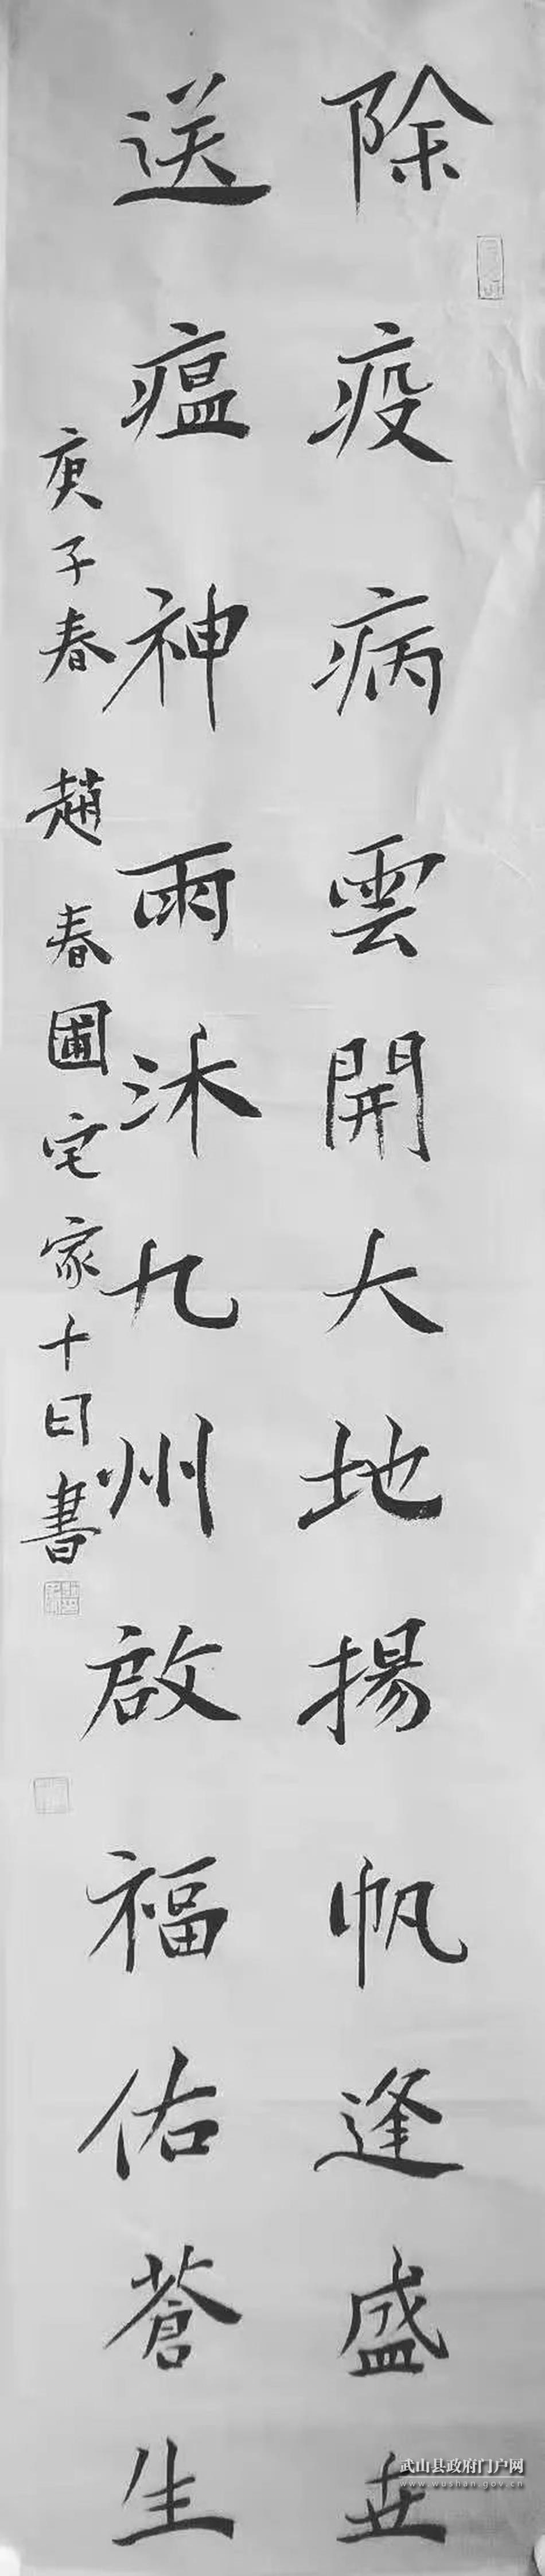 除疫病雲開大地揚帆逢盛世
送瘟神雨沐九州啟福佑蒼生
庚子春 趙春圃宅家十日書
武山县政府门户网
www.wushan.gov.cn